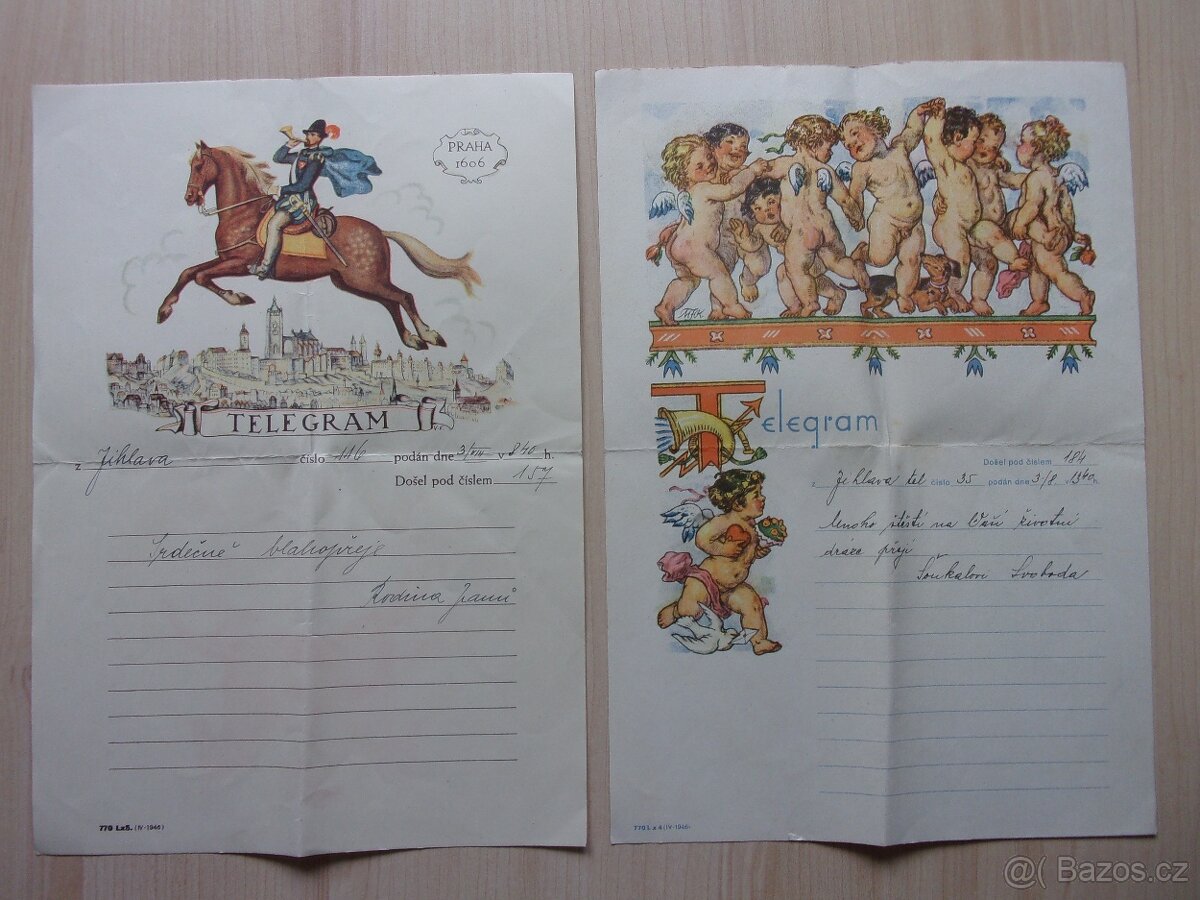 PRAHA
1606
TELEGRAM
z Jihlava číslo 116 podán dne 3/VIII v 840 h.
Došel pod číslem 157
Srdečně blahopřeje
Rodina
770 Lx5. (IV-1946)
Telegram
Došel pod číslem 184
z Jihlava tel číslo 35 podán dne 3/8 v 1340 h.
Mnoho štěstí na Vaší životní
dráze přejí
Svoboda
770 L x 4 (IV-1946)
@( Bazos.cz